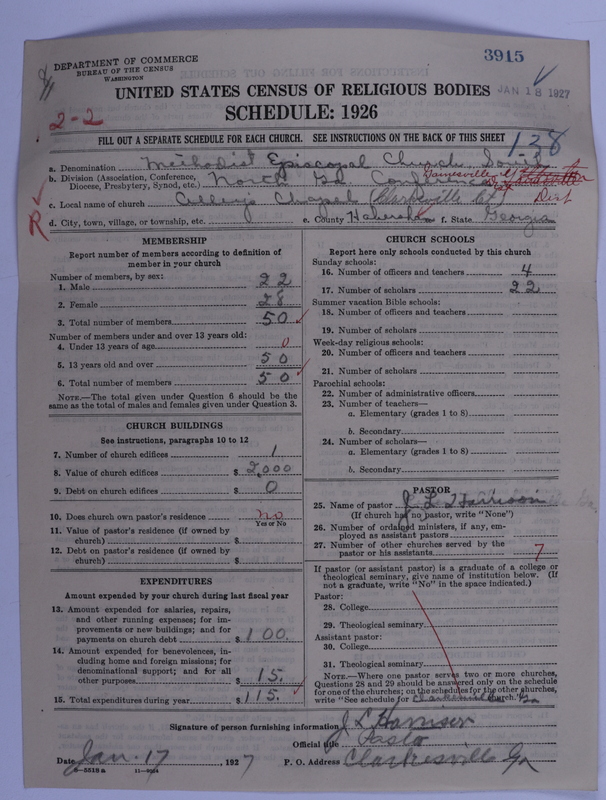 3915
DEPARTMENT OF COMMERCE
BUREAU OF THE CENSUS
WASHINGTON
UNITED STATES CENSUS OF RELIGIOUS BODIES
JAN 18 1927
SCHEDULE: 1926
2-2
FILL OUT A SEPARATE SCHEDULE FOR EACH CHURCH. SEE INSTRUCTIONS ON THE BACK OF THIS SHEET
138
a. Denomination Methodist Episcopal Church South
b. Division (Association, Conference, Diocese, Presbytery, Synod, etc.) North Ga Conference Gainesville
Dist
c. Local name of church Chapel (Clarksville Ct)
R
d. City, town, village, or township, etc. e. County Habersham f. State Georgia
MEMBERSHIP
Report number of members according to definition of
member in your church
Number of members, by sex:
1. Male 22
2. Female 28
3. Total number of members 50
Number of members under and over 13 years old:
4. Under 13 years of age 0
5. 13 years old and over 50
6. Total number of members 50
NOTE.—The total given under Question 6 should be the
same as the total of males and females given under Question 3.
CHURCH BUILDINGS
See instructions, paragraphs 10 to 12
7. Number of church edifices 1
8. Value of church edifices $ 2,000
9. Debt on church edifices $ 0
10. Does church own pastor's residence no
Yes or No
11. Value of pastor's residence (if owned by
church) $
12. Debt on pastor's residence (if owned by
church) $
EXPENDITURES
Amount expended by your church during last fiscal year
13. Amount expended for salaries, repairs,
and other running expenses; for im-
provements or new buildings; and for
payments on church debt $ 100.
14. Amount expended for benevolences, in-
cluding home and foreign missions; for
denominational support; and for all
other purposes $ 15.
15. Total expenditures during year $ 115.
CHURCH SCHOOLS
Report here only schools conducted by this church
Sunday schools:
16. Number of officers and teachers 4
17. Number of scholars 22
Summer vacation Bible schools:
18. Number of officers and teachers
19. Number of scholars
Week-day religious schools:
20. Number of officers and teachers
21. Number of scholars
Parochial schools:
22. Number of administrative officers
23. Number of teachers—
a. Elementary (grades 1 to 8)
b. Secondary
24. Number of scholars—
a. Elementary (grades 1 to 8)
b. Secondary
PASTOR
25. Name of pastor J L Harrison
(If church has no pastor, write "None")
26. Number of ordained ministers, if any, em-
ployed as assistant pastors
27. Number of other churches served by the
pastor or his assistants 7
If pastor (or assistant pastor) is a graduate of a college or
theological seminary, give name of institution below. (If
not a graduate, write "No" in the space indicated.)
Pastor:
28. College
29. Theological seminary
Assistant pastor:
30. College
31. Theological seminary
NOTE.—Where one pastor serves two or more churches,
Questions 28 and 29 should be answered only on the schedule
for one of the churches; on the schedules for the other churches,
write "See schedule for Clarkesville Ga church."
Signature of person furnishing information J L Harrison
Official title Pastor
Date Jan. 17, 1927 P. O. Address Clarkesville Ga
8—5518a 11—9064